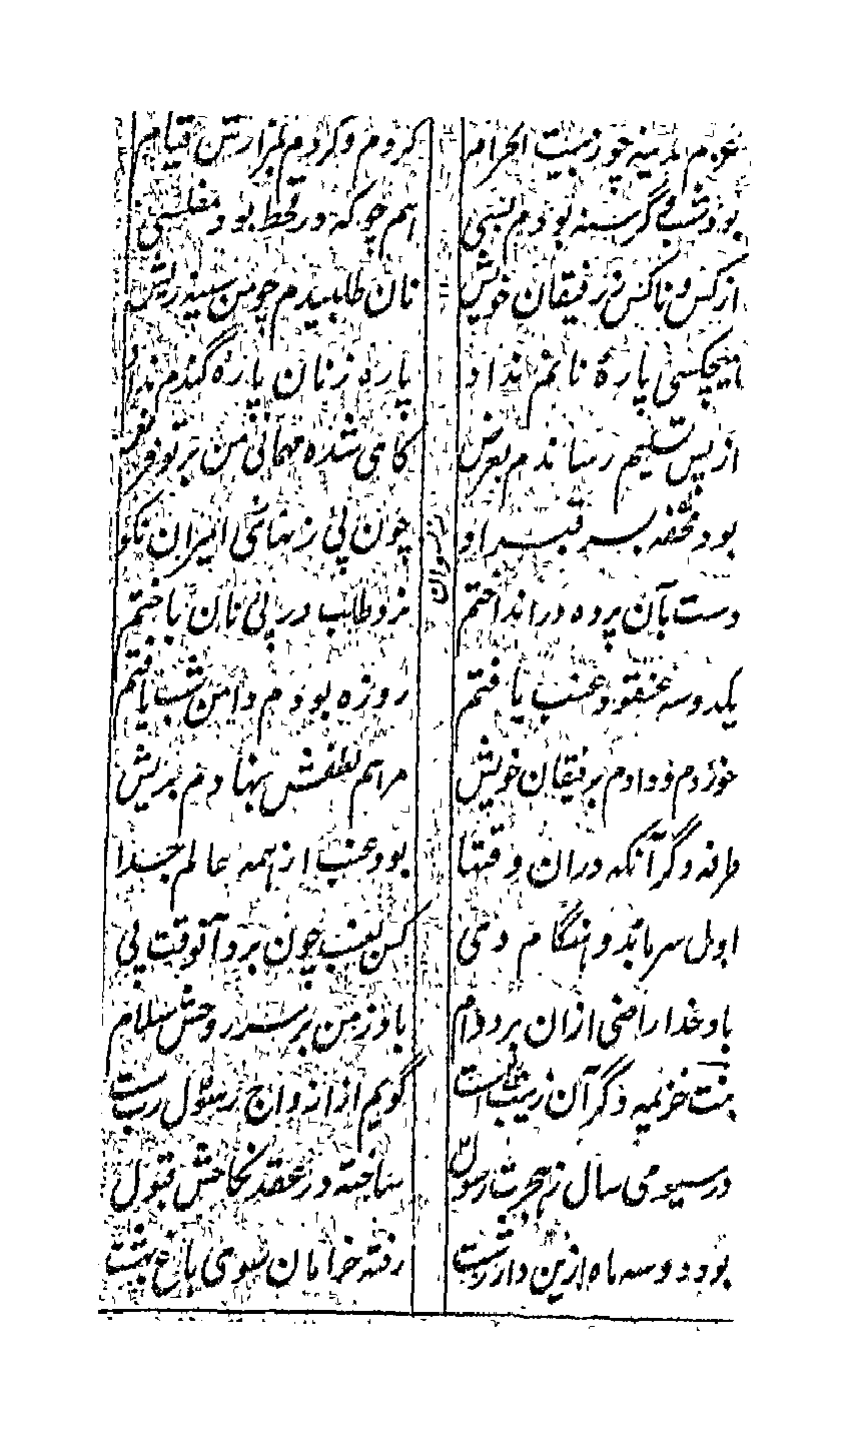 عزم مدینه چو ز بیت الحرام کردم و کردم بمزارش قیام
بود شب و گرسنه بودم بسی هم چو که در قحط بود مفلسی
از کس و ناکس ز رفیقان خویش نان طلبیدم چو من سینه ریش
هیچکسی پارهٔ نانم نداد پاره ز نان پارهٔ گندم نداد
از پس تسلیم رساندم بعرض کامی شده مهمانی من بر تو فرض
بود محفه بسر قبر او چون پی زنهای امیران نکو
زنهوان
دست بآن پرده در انداختم نرد طلب در پی نان باختم
یکدو سه عنقود عنب یافتم روزه بودم دامن شب یافتم
خوردم و دادم برفیقان خویش مرهم لطفش بنهادم بریش
طرفه دگر آنکه دران وقتها بود عنب از همه عالم جدا
اول سرما بد و هنگام دی کس بعنب چون برد آنوقت پی
باد خدا راضی ازان بر دوام باد ز من بر سر روحش سلام
بنت خزیمه دگر آن زینب است گویم از ازواج رسول رب است
در سیومی سال ز هجرت رسول ساخته در عقد نکاحش قبول
بود دو سه ماه ازین دار زشت رفته خرامان بسوی باغ بهشت